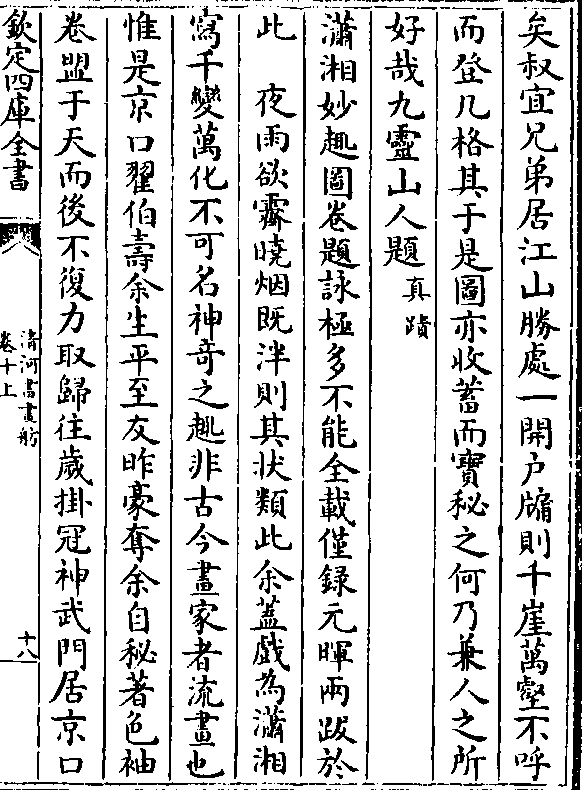 矣叔宜兄弟居江山勝處一開户牖則千崖萬壑不呼
而登几格其于是圖亦收蓄而寶秘之何乃兼人之所
好哉九靈山人題真蹟
瀟湘妙趣圖卷題詠極多不能全載僅録元暉兩跋於
此　夜雨欲霽曉烟既泮則其狀類此余蓋戲為瀟湘
寫千變萬化不可名神奇之趣非古今畫家者流畫也
惟是京口翟伯壽余生平至友昨豪奪余自秘著色袖
卷盟于天而後不復力取歸往歲掛冠神武門居京口
欽定四庫全書
清河書畫舫
卷十上
十八